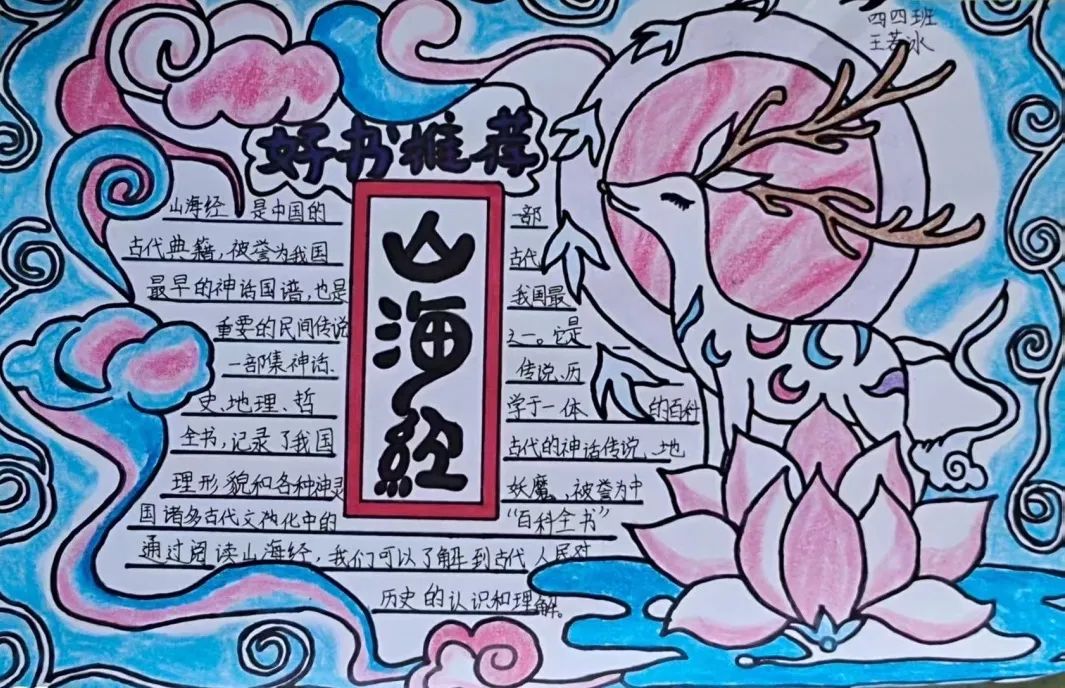 四四班
王若冰
好书推荐
山海经
山海经 是中国的 一部
古代典籍,被誉为我国 古代
最早的神话国谱,也是 我国最
重要的民间传说 之一。它是
一部集神话、 传说、历
史、地理、哲 学于一体 的百科
全书,记录了我国 古代的神话传说、地
理形貌和各种神灵 妖魔,被誉为中
国诸多古代文化中的 “百科全书”
通过阅读山海经,我们可以了解到古代人民对
历史的认识和理解。